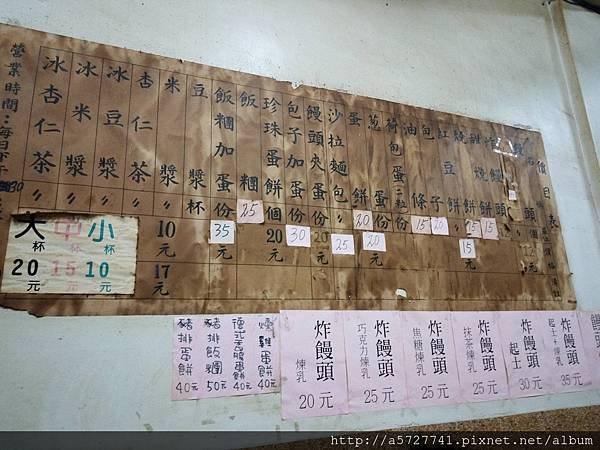 價目表
饅頭
甜燒餅
燒餅
紅豆餅
包子
油條
荷包蛋二粒
蔥
20
蛋餅
20
沙拉麵包〃
25
饅頭夾蛋份20
包子加蛋份
30
珍珠蛋餅個20元
飯糰
25
飯糰加蛋份
35
豆漿杯
米漿〃10元17元
杏仁茶〃
冰豆漿〃
冰米漿〃
冰杏仁茶〃
營業時間：每日下午
15
20
15
15
15
大杯20元
中杯15元
小杯10元
豬排蛋餅40元
豬排飯糰50元
德式香腸蛋餅40元
燻雞蛋餅40元
炸饅頭煉乳20元
炸饅頭巧克力煉乳25元
炸饅頭焦糖煉乳25元
炸饅頭抹茶煉乳25元
炸饅頭起士30元
炸饅頭起士+煉乳35元
http://a5727741.pixnet.net/album